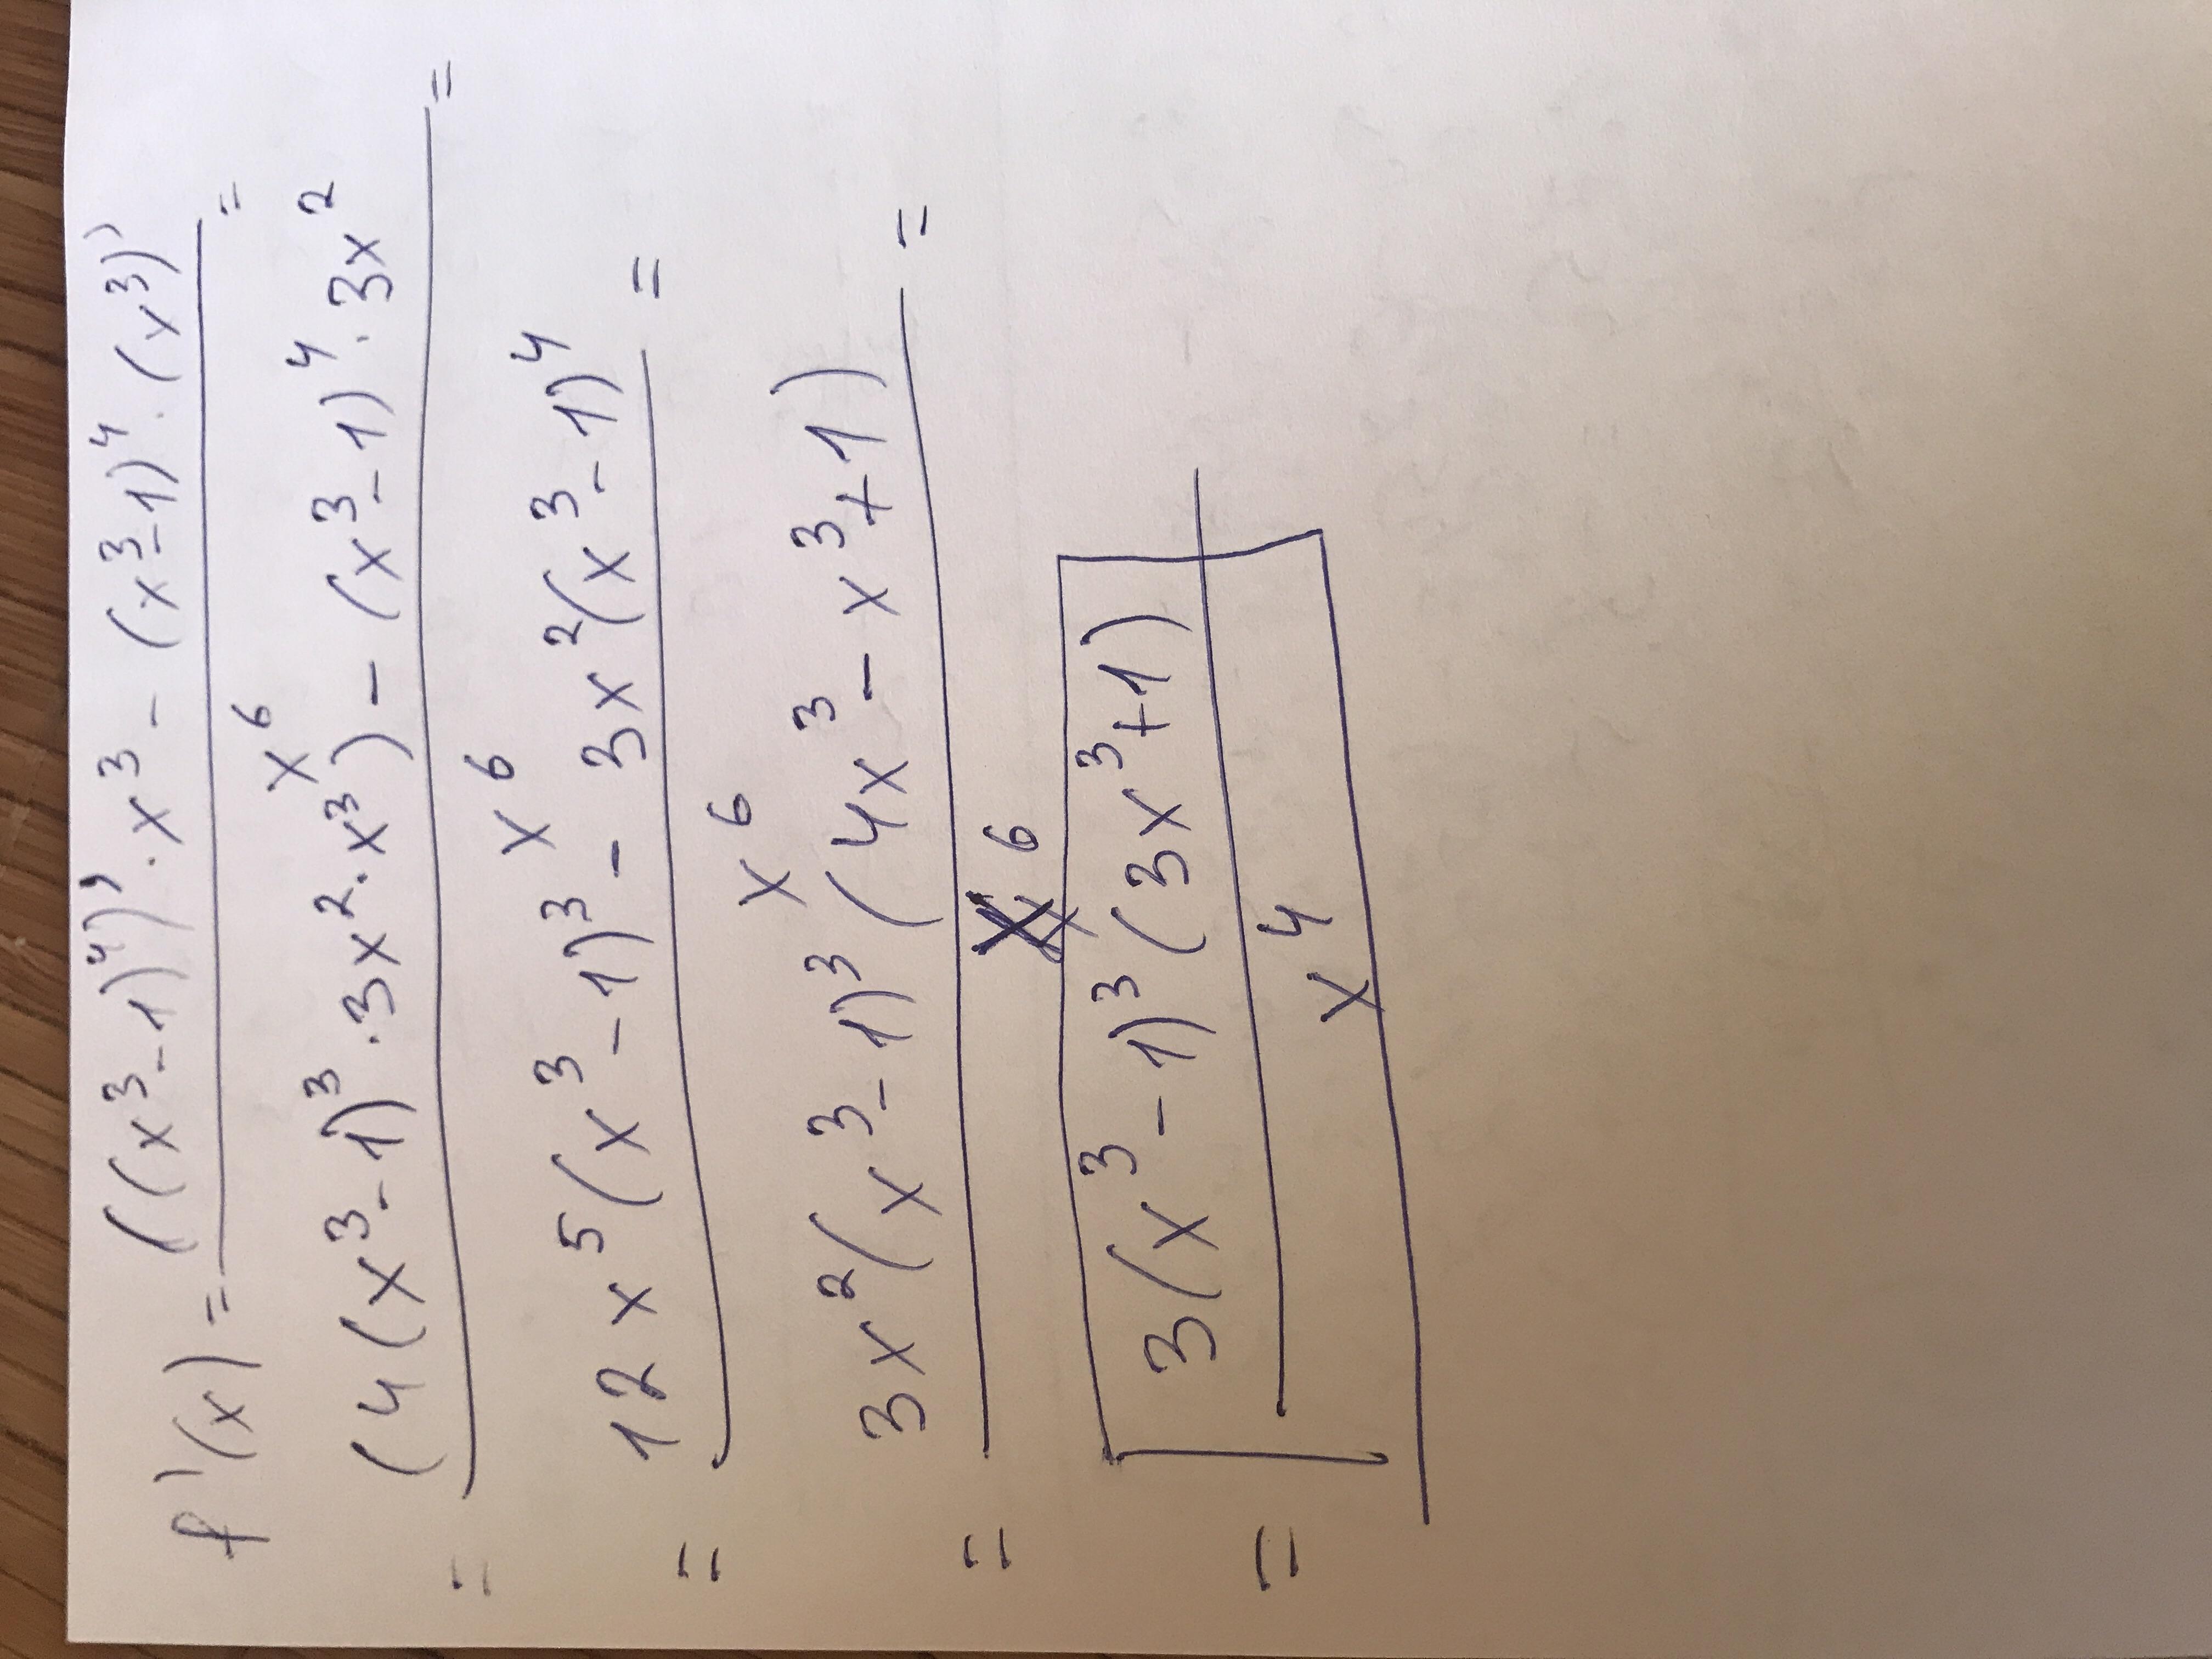 f'(x) = ((x³-1)⁴)'·x³ - (x³-1)⁴·(x³)' =
x⁶
= (4(x³-1)³·3x²·x³) - (x³-1)⁴·3x² =
x⁶
= 12x⁵(x³-1)³ - 3x²(x³-1)⁴ =
x⁶
= 3x²(x³-1)³(4x³-x³+1) =
x⁶
= 3(x³-1)³(3x³+1)
x⁴